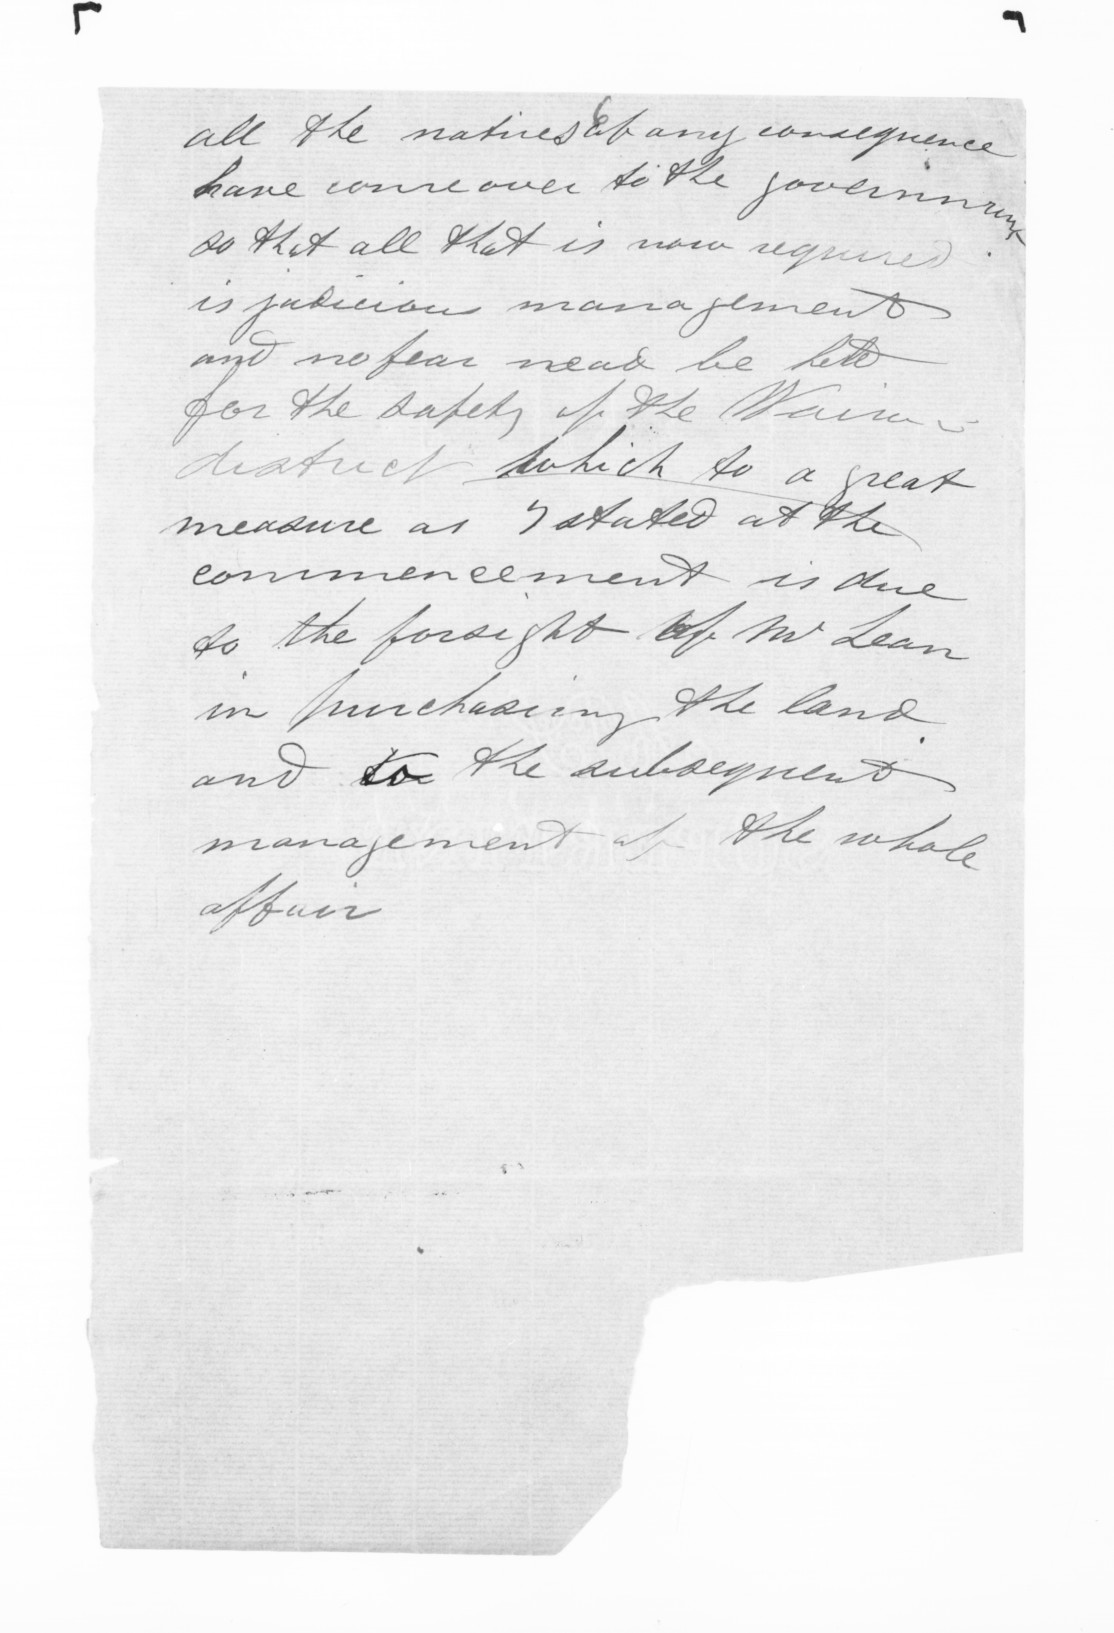 all the natives of any consequence
have come over to the government
so that all that is now required
is judicious management
and no fear nead be held
for the safety of the Wairoa
district which to a great
measure as I stated at the
commencement is due
to the forsight of Mr Lean
in purchasing the land
and to the subsequent
management of the whole
affair